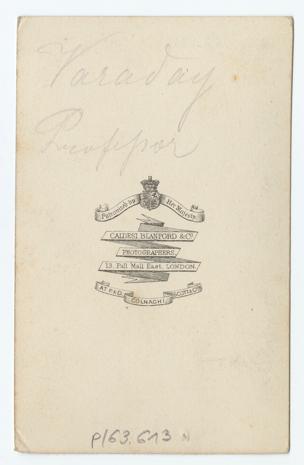 Varaday
Professor
Patronised by Her Majesty
CALDESI BLANFORD & Co.
PHOTOGRAPHERS,
13, Pall Mall East, LONDON.
AT P & D COLNAGHI SCOTT & Co.
P/63.613 N